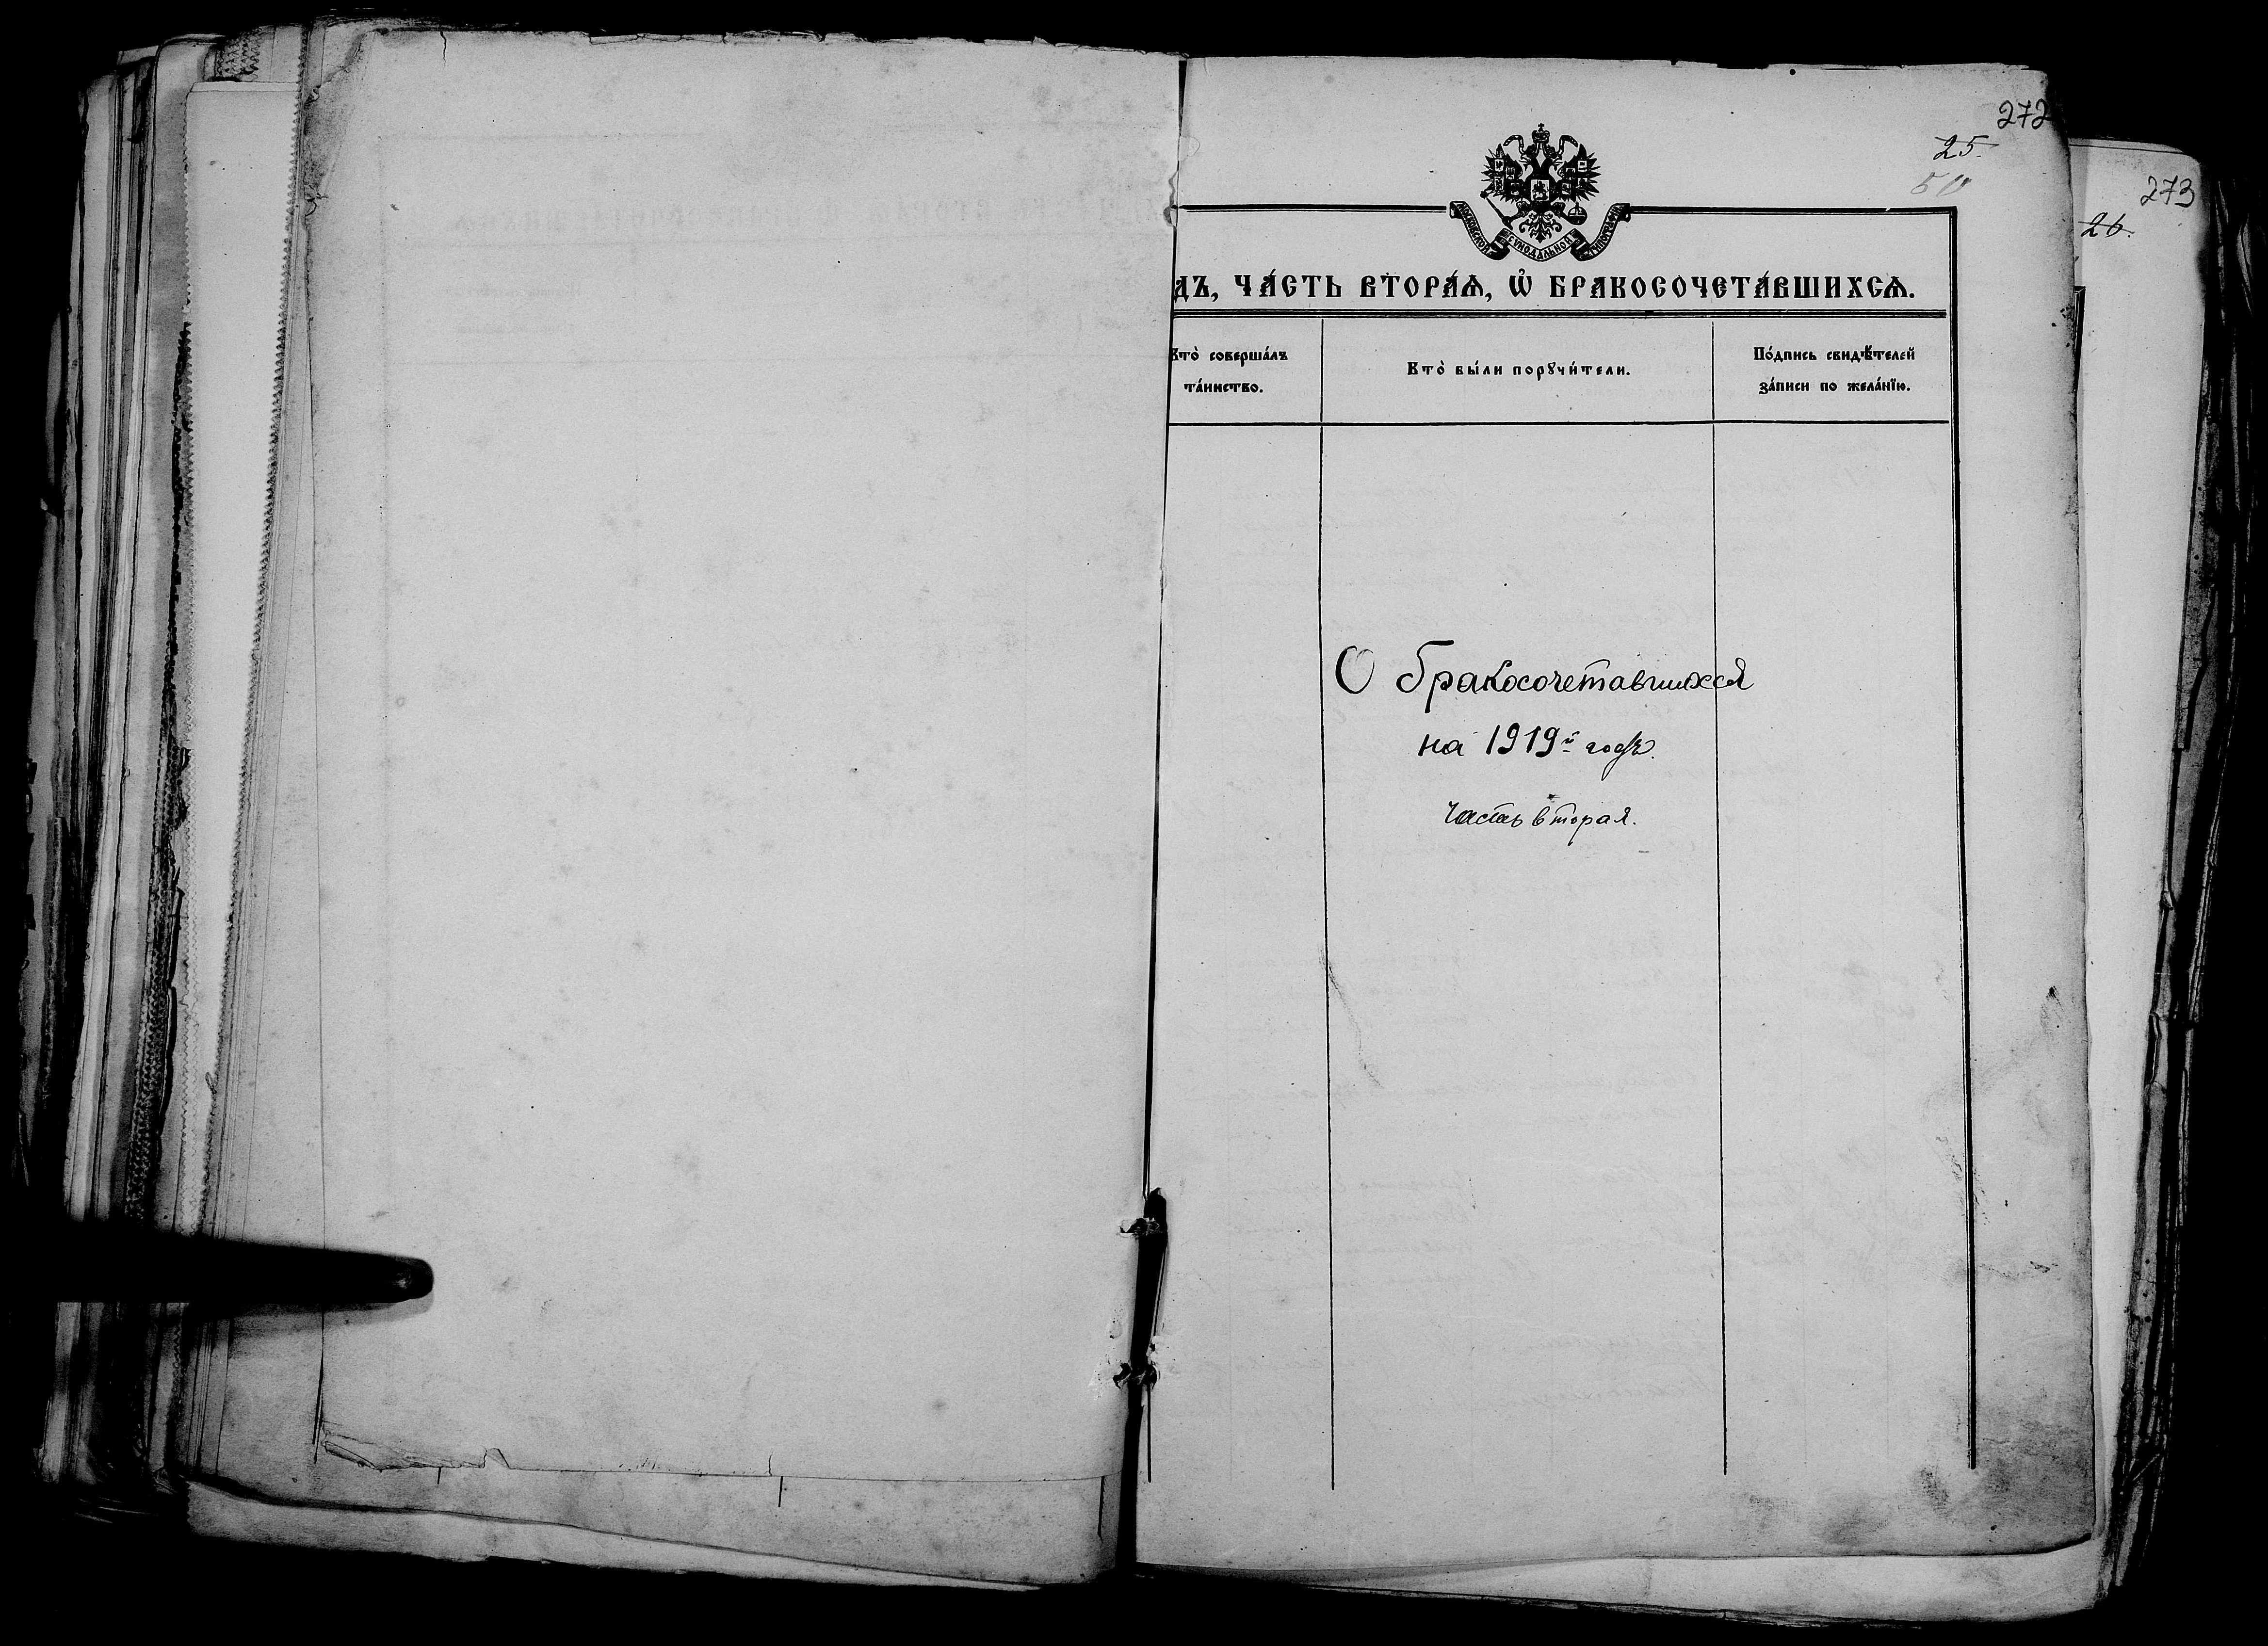 272
25.
50
273
26.
МОСКОВСКОЙ СѴНОДАЛЬНОЙ ТИПОГРАФІИ
ДЪ, ЧА́СТЬ ВТОРА́Ѧ, Ѽ БРАКОСОЧЕТА́ВШИХСѦ.
Кто̀ соверша́лъ
та́инство.
Кто̀ бы́ли порꙋчи́тели.
По́дпись свидѣ́телей
за́писи по жела́нїю.
О бракосочетавшихся
на 1919й годъ.
Часть вторая.